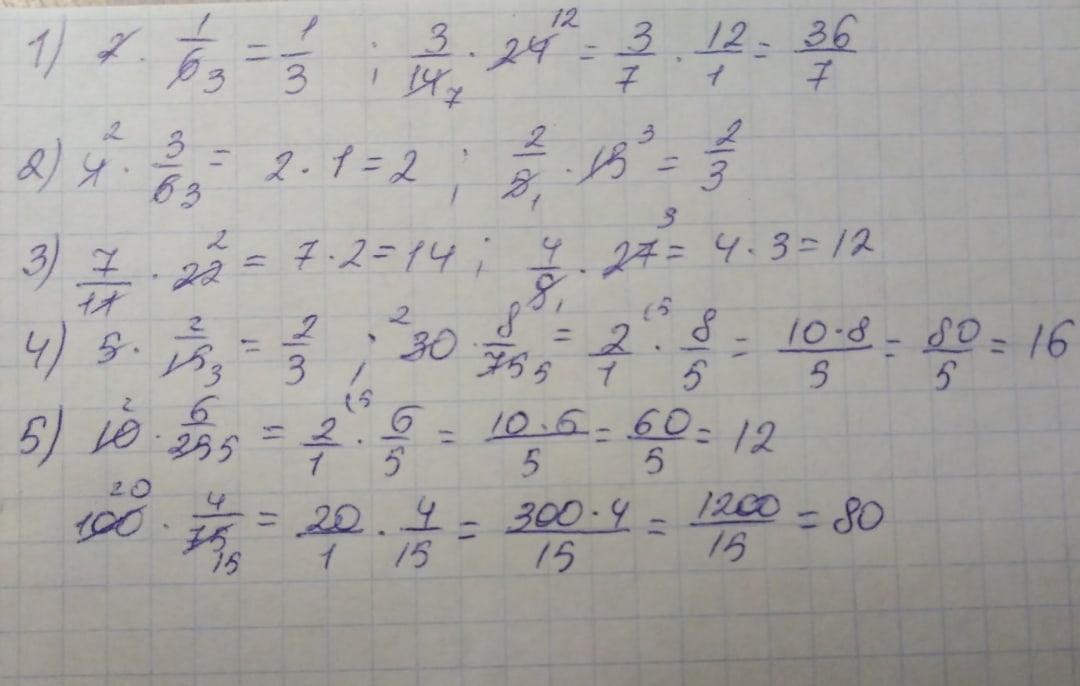 1) 2 · 1/6 3 = 1/3 ; 3/14 7 · 24 12 = 3/7 · 12/1 = 36/7
2) 4 2 · 3/6 3 = 2 · 1 = 2 ; 2/5 1 · 15 3 = 2/3
3) 7/11 · 22 2 = 7 · 2 = 14 ; 4/9 1 · 27 3 = 4 · 3 = 12
4) 5 · 2/15 3 = 2/3 ; 2 30 · 8/75 5 = 2/1 (5 · 8/5 = 10·8/5 = 80/5 = 16
5) 10 2 · 6/25 5 = 2/1 (5 · 6/5 = 10·6/5 = 60/5 = 12
100 20 · 4/75 15 = 20/1 · 4/15 = 300·4/15 = 1200/15 = 80